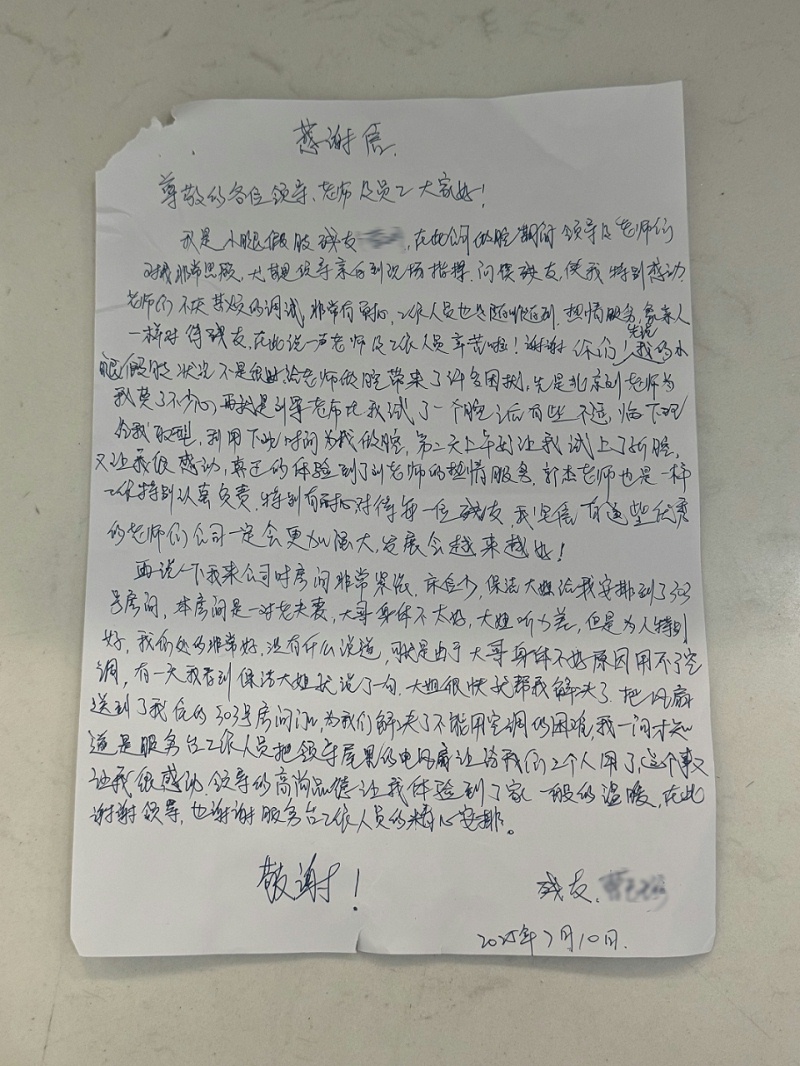 感谢信.
尊敬的各位领导、老师及员工大家好!
我是小腿假肢残友，在此公司做腔期间领导及老师们
对我非常照顾，尤其是领导亲自到现场指挥.问候残友，使我特别感动.
老师们不厌其烦的调试,非常有耐心,工作人员也是随叫随到.热情服务,象亲人
一样对待残友,在此说一声老师及工作人员辛苦啦!谢谢你们!先说我的小
腿假肢状况不是很好给老师做腔带来了许多困扰,先是北京刘老师为
我费了不少心,再就是刘军老师比我试了一个腔试后有些不适,临下班
给我取型,利用下班时间为我做腔,第二天上午好让我试上了新腔,
又让我很感动,真正的体验到了刘老师的热情服务.郭杰老师也是一样
工作特别认真负责.特别有耐心对待每一位残友,我坚信有这些优秀
的老师们公司一定会更加强大,发展会越来越好!
再说一下我来公司时房间非常紧张.床位少,保洁大姐给我安排到了303
号房间,本房间是一对老夫妻,大哥身体不太好,大姐听力差,但是为人特别
好,我们处的非常好,没有什么说道,可就是由于大哥身体不好原因用不了空
调,有一天我看到保洁大姐我说了一句.大姐很快就帮我解决了.把风扇
送到了我住的303号房间门口,为我们解决了不能用空调的困难,我一问才知
道是服务台工作人员把领导屋里的电风扇让给我们2个人用了,这个事又
让我很感动.领导的高尚品德让我体验到了家一般的温暖,在此
谢谢领导,也谢谢服务台工作人员的精心安排。
敬谢!
残友.
2025年7月10日.